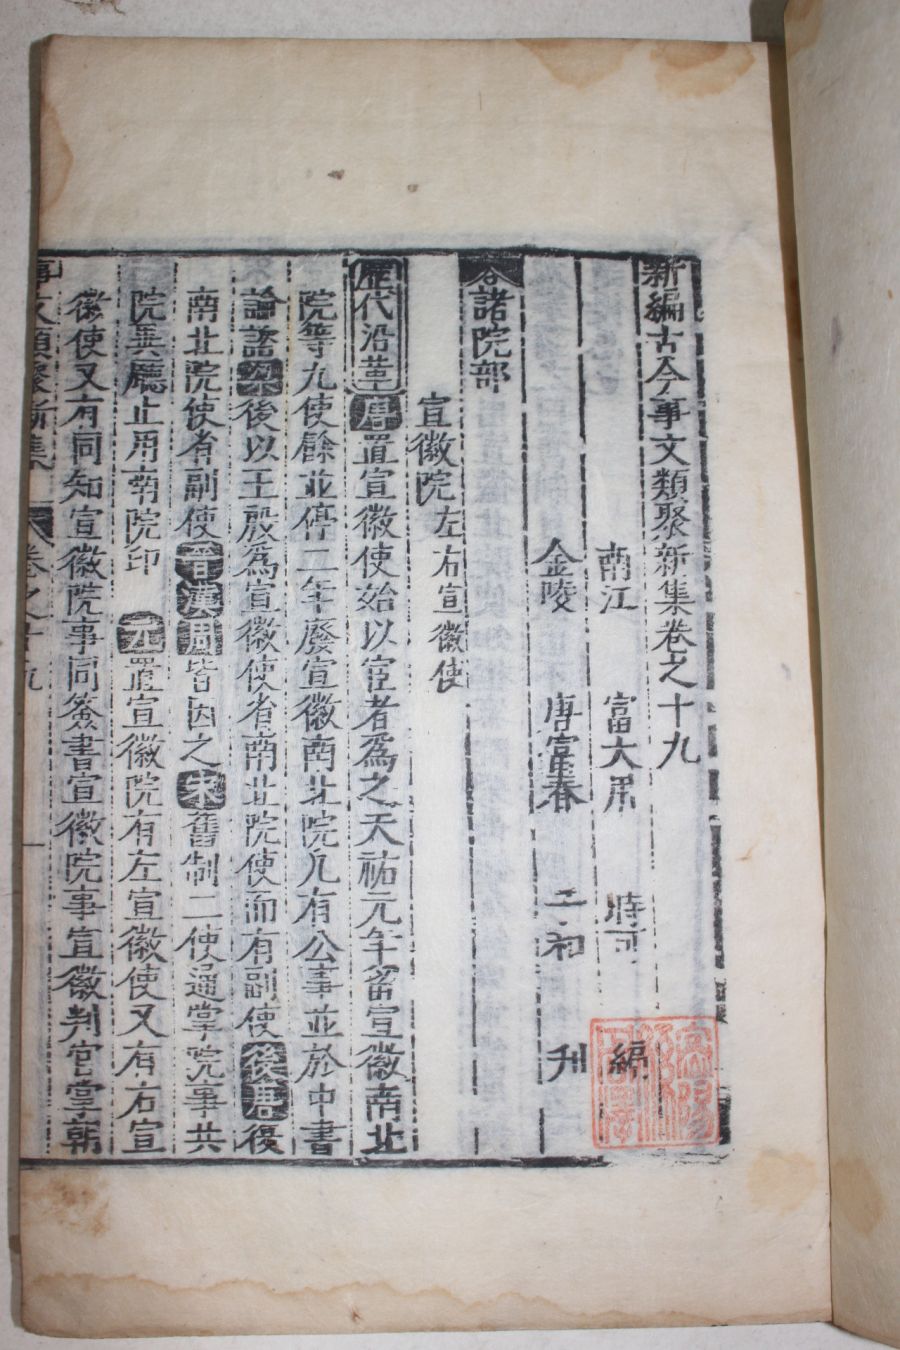 新編古今事文類聚新集卷之十九
南江 富大用 時可 編
金陵 唐富春 子和 刋
諸院部
宣徽院左右宣徽使
歷代沿革唐置宣徽使始以宦者爲之天祐元年畱宣徽南北
院等九使餘並停二年廢宣徽南北院凡有公事並於中書
論諮梁後以王殷爲宣徽使省南北院使而有副使後唐復
南北院使者副使晉漢周皆因之宋舊制二使通掌院事共
院異廳止用南院印 元置宣徽院有左宣徽使又有右宣
徽使又有同知宣徽院事同簽書宣徽院事宣徽判官掌朝
事文類聚新集 卷之十九 一